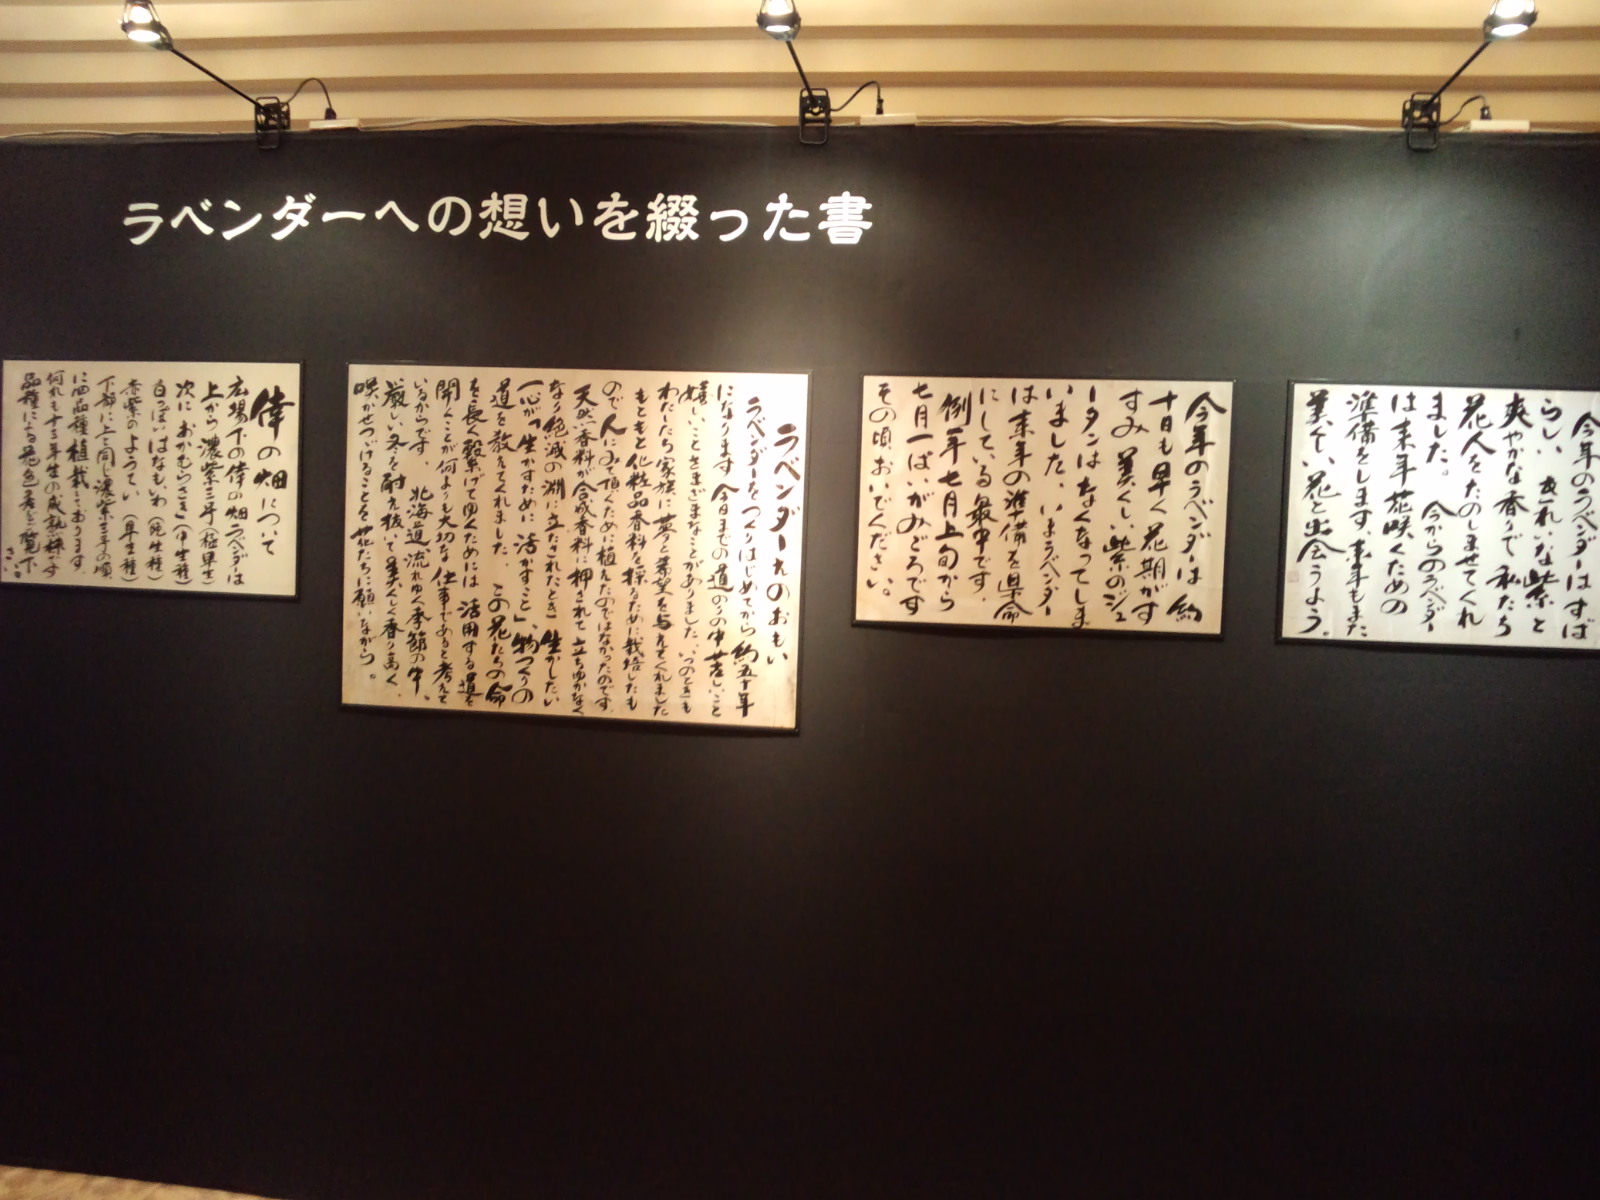 ラベンダーへの想いを綴った書
倖の畑について
広場下の倖の畑ラベンダーは
上から 濃紫三号(極早生)
次に おかむらさき(中生種)
白っぽい はなもいわ(晩生種)
赤紫の ようてい(早生種)
下部に上と同じ濃紫三号の順
に四品種植栽しております。
何れも十三年生の成熟株です
品種による花色の差をご覧下
さい。
ラベンダーえのおもい
ラベンダーをつくりはじめてから約五十年
になります 今日までの道のりの中苦しいこと
嬉しいことさまざまなことがありました、いつのときも
わたしたち家族に夢と希望を与えてくれました
もともと化粧品香料を採るために栽培したも
ので人にみて頂くために植えたのではなかったのです、
天然香料が合成香料に押されて立ちゆかなく
なり絶滅の淵に立たされたとき生かしたい
一心が「生かすために活かすこと」、物つくりの
道を教えてくれました、この花たちの命
を長く繋げてゆくためには活用する道を
開くことが何よりも大切な仕事であると考えて
いるからです、北海道、流れゆく季節の中。
厳しい冬を耐え抜いて美しく香り高く、
咲かせつづけることを花たちに願いながら。
今年のラベンダーは約
十日も早く花期がす
すみ美くしい紫のジュ
ータンはなくなってしま
いました、いまラベンダー
は来年の準備を懸命
にしている最中です、
例年七月上旬から
七月一ぱいがみごろです
その頃おいでください。
今年のラベンダーはすば
らしいきれいな紫と
爽やかな香りで私たち
花人をたのしませてくれ
ました。今からのラベンダー
は来年花咲くための
準備をします、来年もまた
美くしい花と出会うよう。